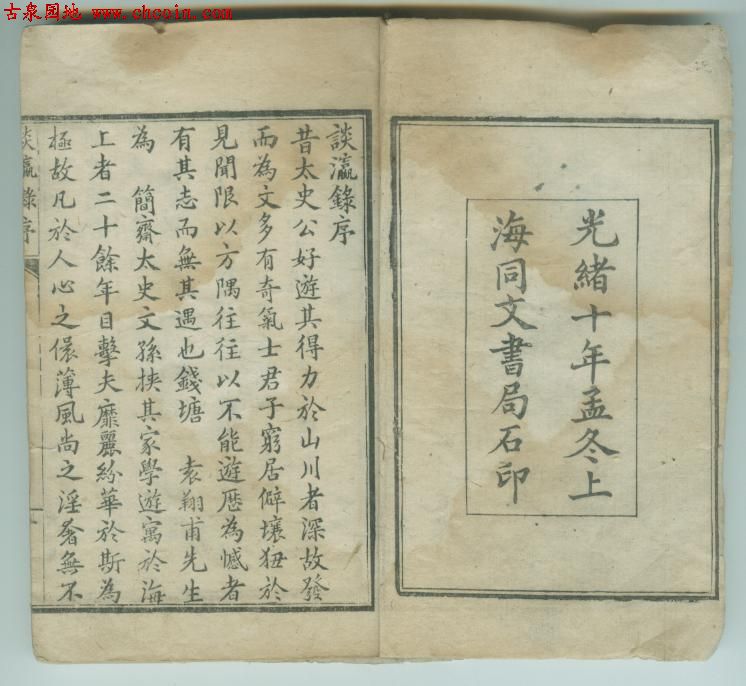 古泉园地 www.chcoin.com
光緒十年孟冬上
海同文書局石印
談瀛錄序
昔太史公好遊其得力於山川者深故發
而為文多有奇氣士君子窮居僻壤狃於
見聞限以方隅往往以不能遊歷為憾者
有其志而無其遇也錢塘 袁翔甫先生
為 簡齋太史文孫挾其家學遊寓於海
上者二十餘年目擊夫靡麗紛華於斯為
極故凡於人心之儇薄風尚之淫奢無不
談瀛錄序